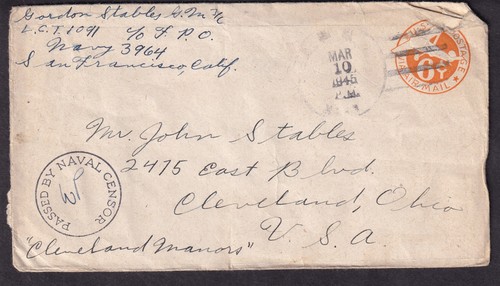 Gordon Stables G.M 1/c
L.C.T. 1091 c/o F.P.O.
Navy 3964
San Francisco, Calif.
MAR
10
1945
P.M.
POSTAGE
6¢
AIR MAIL
Mr. John Stables
2475 East Blvd.
Cleveland, Ohio
U. S. A.
PASSED BY NAVAL CENSOR
"Cleveland Manors"